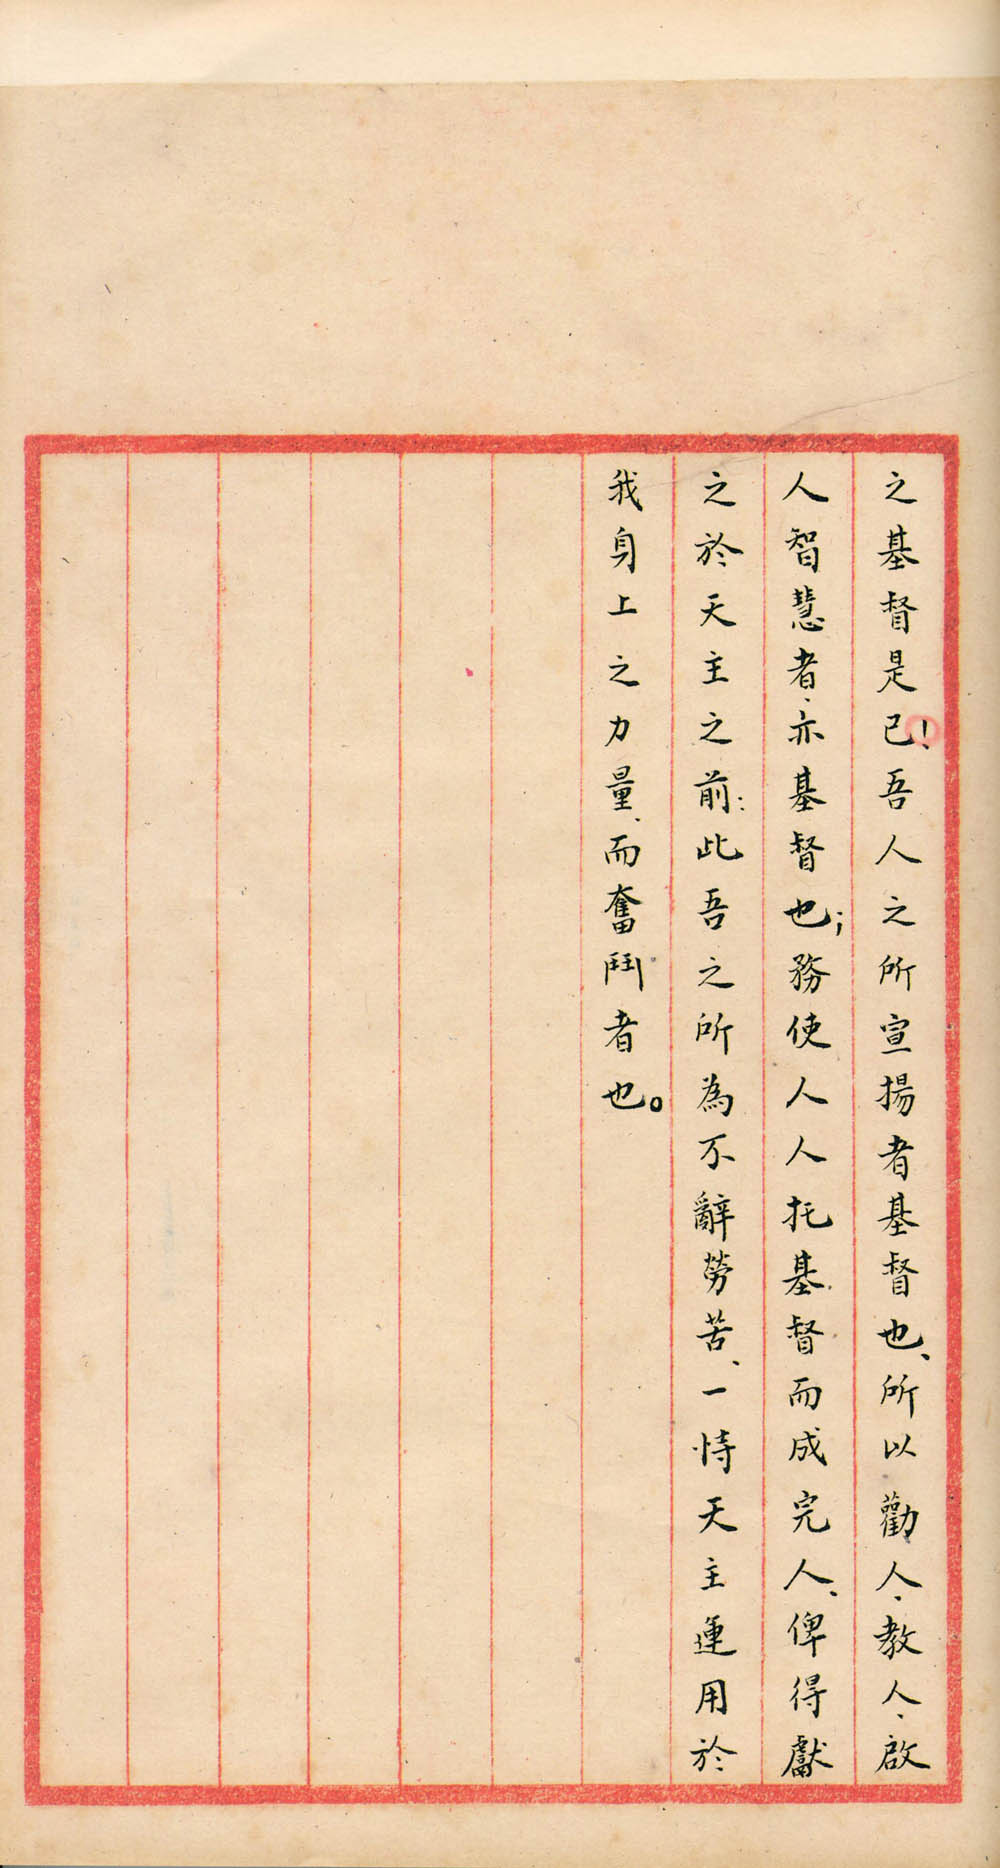 之基督是已！吾人之所宣揚者基督也、所以勸人、教人、啟
人智慧者、亦基督也；務使人人托基督而成完人、俾得獻
之於天主之前：此吾之所為不辭勞苦、一恃天主運用於
我身上之力量、而奮鬥者也。